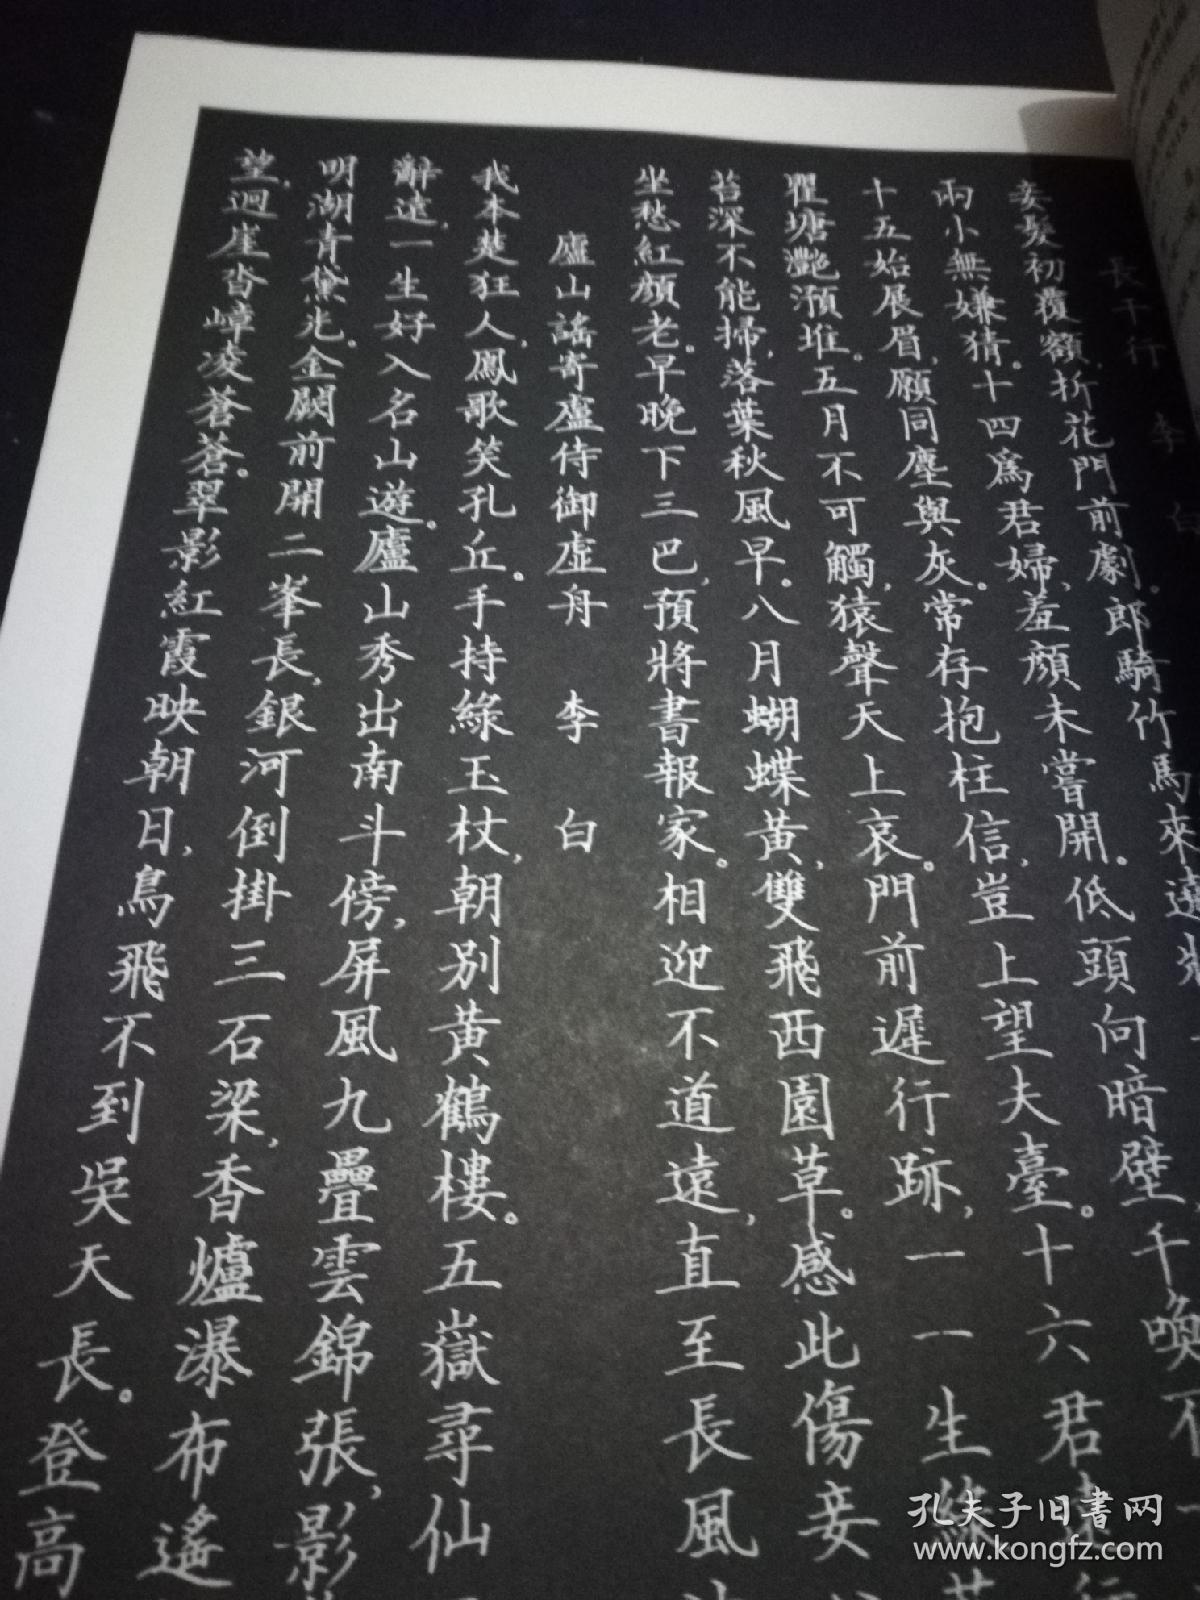 長干行　李白
妾髮初覆額,折花門前劇。郎騎竹馬來,遶牀
兩小無嫌猜。十四為君婦,羞顏未嘗開。低頭向暗壁,千喚不一
十五始展眉,願同塵與灰。常存抱柱信,豈上望夫臺。十六君遠行
瞿塘灩澦堆。五月不可觸,猿聲天上哀。門前遲行跡,一一生綠苔
苔深不能掃,落葉秋風早。八月蝴蝶黃,雙飛西園草。感此傷妾
坐愁紅顏老。早晚下三巴,預將書報家。相迎不道遠,直至長風
廬山謠寄盧侍御虛舟　李白
我本楚狂人,鳳歌笑孔丘。手持綠玉杖,朝別黃鶴樓。五嶽尋仙
辭遠,一生好入名山遊。廬山秀出南斗傍,屏風九疊雲錦張,影
明湖青黛光。金闕前開二峯長,銀河倒掛三石梁,香爐瀑布遙
望,迴崖沓嶂凌蒼蒼。翠影紅霞映朝日,鳥飛不到吳天長。登高
孔夫子旧書网
www.kongfz.com